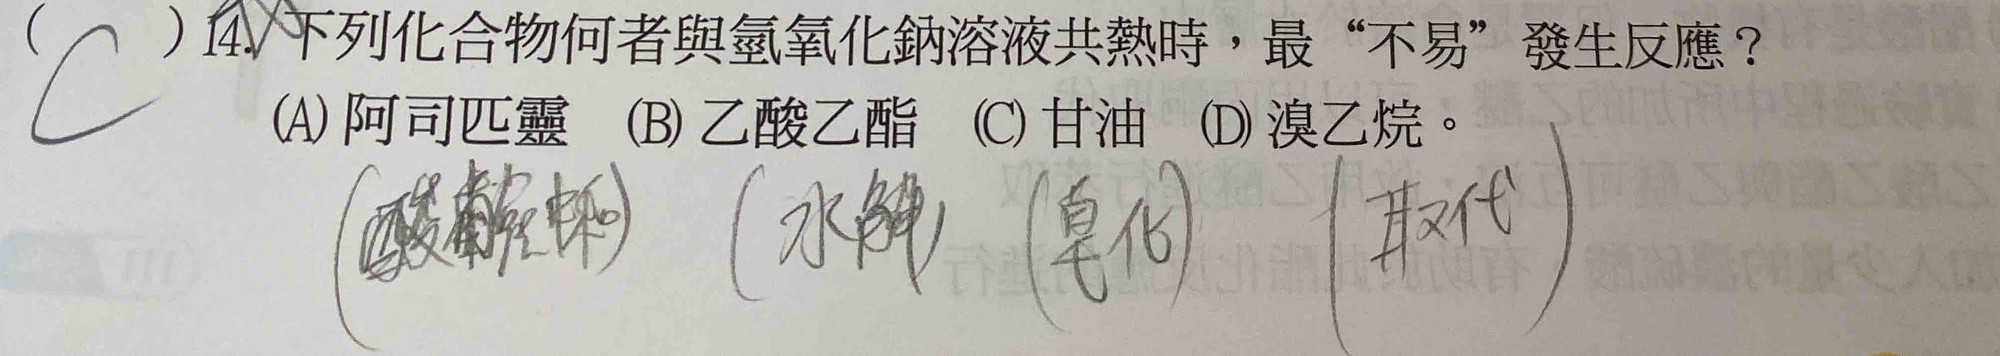 ( C ) 14. 下列化合物何者與氫氧化鈉溶液共熱時，最“不易”發生反應？
(A) 阿司匹靈 (B) 乙酸乙酯 (C) 甘油 (D) 溴乙烷。
(酸鹼中和) (水解) (皂化) (取代)